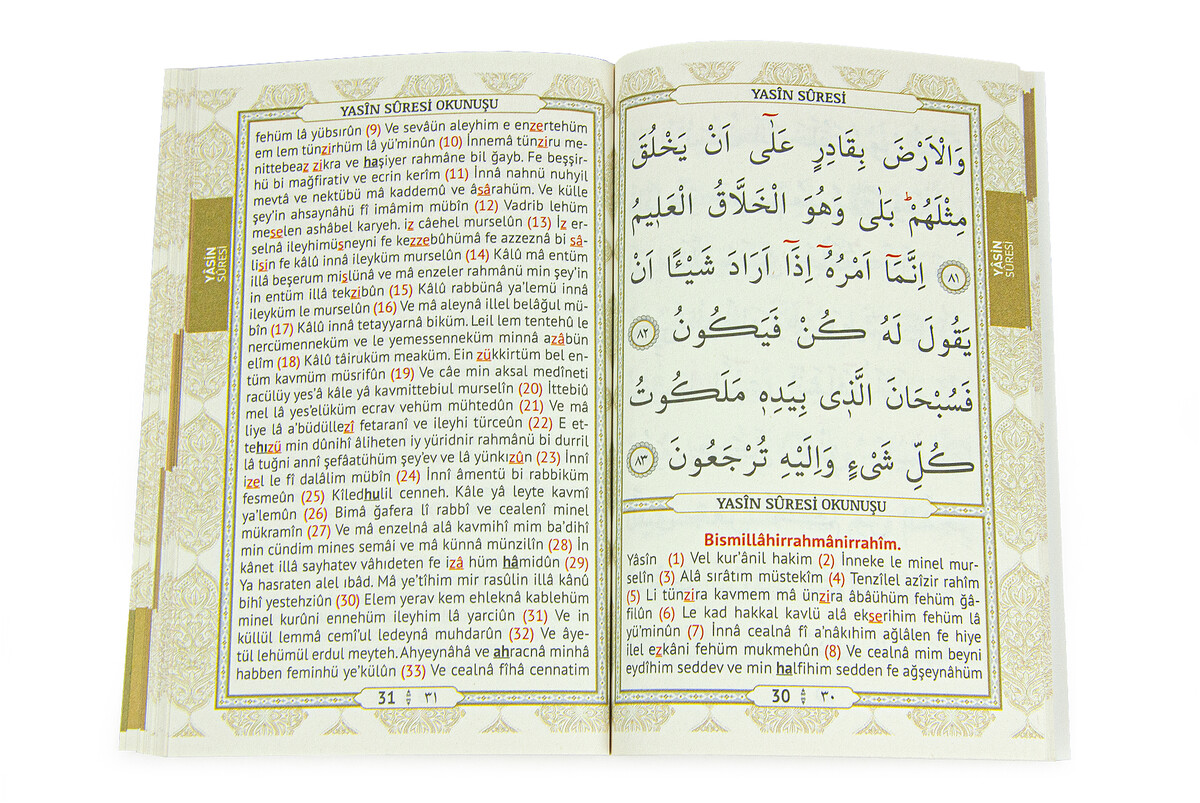 YASÎN SÛRESİ
وَالْاَرْضَ بِقَادِرٍ عَلٰٓى اَنْ يَخْلُقَ
مِثْلَهُمْۜ بَلٰى وَهُوَ الْخَلَّاقُ الْعَلٖيمُ
﴿٨١﴾ اِنَّمَٓا اَمْرُهُٓ اِذَٓا اَرَادَ شَيْـًٔا اَنْ
يَقُولَ لَهُ كُنْ فَيَكُونُ ﴿٨٢﴾
فَسُبْحَانَ الَّذٖى بِيَدِهٖ مَلَكُوتُ
كُلِّ شَىْءٍ وَاِلَيْهِ تُرْجَعُونَ ﴿٨٣﴾
YASÎN SÛRESİ OKUNUŞU
Bismillâhirrahmânirrahîm.
Yâsîn (1) Vel kur’ânil hakim (2) İnneke le minel mur-
selîn (3) Alâ sırâtım müstekîm (4) Tenzîlel azîzir rahîm
(5) Li tünzira kavmem mâ ünzira âbâühüm fehüm ğâ-
filûn (6) Le kad hakkal kavlü alâ ekserihim fehüm lâ
yü’minûn (7) İnnâ cealnâ fî a’nâkıhim ağlâlen fe hiye
ilel ezkâni fehüm mukmehûn (8) Ve cealnâ mim beyni
eydîhim seddev ve min halfihim sedden fe ağşeynâhüm
30 ٣٠
YÂSİN
SÛRESİ
YASÎN SÛRESİ OKUNUŞU
fehüm lâ yübsırûn (9) Ve sevâün aleyhim e enzertehüm
em lem tünzirhüm lâ yü’minûn (10) İnnemâ tünziru me-
nittebeaz zikra ve haşiyer rahmâne bil ğayb. Fe beşşir-
hü bi mağfirativ ve ecrin kerîm (11) İnnâ nahnü nuhyil
mevtâ ve nektübü mâ kaddemû ve âsârahüm. Ve külle
şey’in ahsaynâhü fî imâmim mübîn (12) Vadrib lehüm
meselen ashâbel karyeh. iz câehel murselûn (13) İz er-
selnâ ileyhimüsneyni fe kezzebûhümâ fe azzeznâ bi sâ-
lisin fe kâlû innâ ileyküm murselûn (14) Kâlû mâ entüm
illâ beşerum mislünâ ve mâ enzeler rahmânü min şey’in
in entüm illâ tekzibûn (15) Kâlû rabbünâ ya’lemü innâ
ileyküm le murselûn (16) Ve mâ aleynâ illel belâğul mü-
bîn (17) Kâlû innâ tetayyarnâ biküm. Leil lem tentehû le
nercümenneküm ve le yemessenneküm minnâ azâbün
elîm (18) Kâlû tâiruküm meaküm. Ein zükkirtüm bel en-
tüm kavmüm müsrifûn (19) Ve câe min aksal medîneti
racülüy yes’â kâle yâ kavmittebiul murselîn (20) İttebiû
mel lâ yes’elüküm ecrav vehüm mühtedûn (21) Ve mâ
liye lâ a’büdüllezî fetaranî ve ileyhi türceûn (22) E et-
tehızü min dûnihî âliheten iy yüridnir rahmânü bi durril
lâ tuğni annî şefâatühüm şey’ev ve lâ yünkızûn (23) İnnî
izel le fî dalâlim mübîn (24) İnnî âmentü bi rabbiküm
fesmeûn (25) Kîledhulil cenneh. Kâle yâ leyte kavmî
ya’lemûn (26) Bimâ ğafera lî rabbî ve cealenî minel
mükramîn (27) Ve mâ enzelnâ alâ kavmihî mim ba’dihî
min cündim mines semâi ve mâ künnâ münzilîn (28) İn
kânet illâ sayhatev vâhıdeten fe izâ hüm hâmidûn (29)
Ya hasraten alel ıbâd. Mâ ye’tîhim mir rasûlin illâ kânû
bihî yestehziûn (30) Elem yerav kem ehleknâ kablehüm
minel kurûni ennehüm ileyhim lâ yarciûn (31) Ve in
küllül lemmâ cemî’ul ledeynâ muhdarûn (32) Ve âye-
tül lehümül erdul meyteh. Ahyeynâhâ ve ahracnâ minhâ
habben feminhü ye’külûn (33) Ve cealnâ fîhâ cennatim
31 ٣١
YÂSİN
SÛRESİ